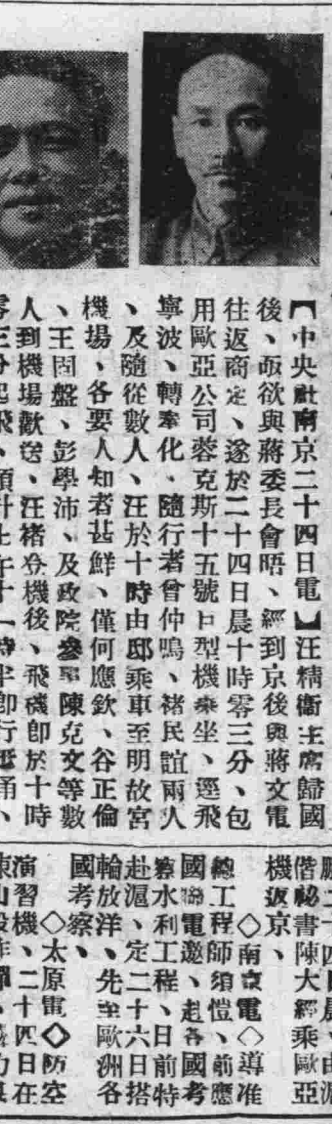 【中央社南京二十四日電】汪精衛主席歸國
後、亟欲與蔣委長會晤、經到京後與蔣文電
往返商定、遂於二十四日晨十時零三分、包
用歐亞公司蓉克斯十五號巨型機乘坐、逕飛
寧波、轉奉化、隨行者曾仲鳴、褚民誼兩人
、及隨從數人、汪於十時由邸乘車至明故宮
機場、各要人知者甚鮮、僅何應欽、谷正倫
、王固盤、彭學沛、及政院參事陳克文等數
人到機場歡送、汪褚登機後、飛機即於十時
零三分起飛、預計上午十一時半即行抵甬、
偕秘書陳大經乘歐亞
機返京、
◇南京電◇導准
總工程師須愷、前應
國聯電邀、赴各國考
察水利工程、日前特
赴滬、定二十六日搭
輪放洋、先至歐洲各
國考察、
◇太原電◇防空
演習機、二十四日在